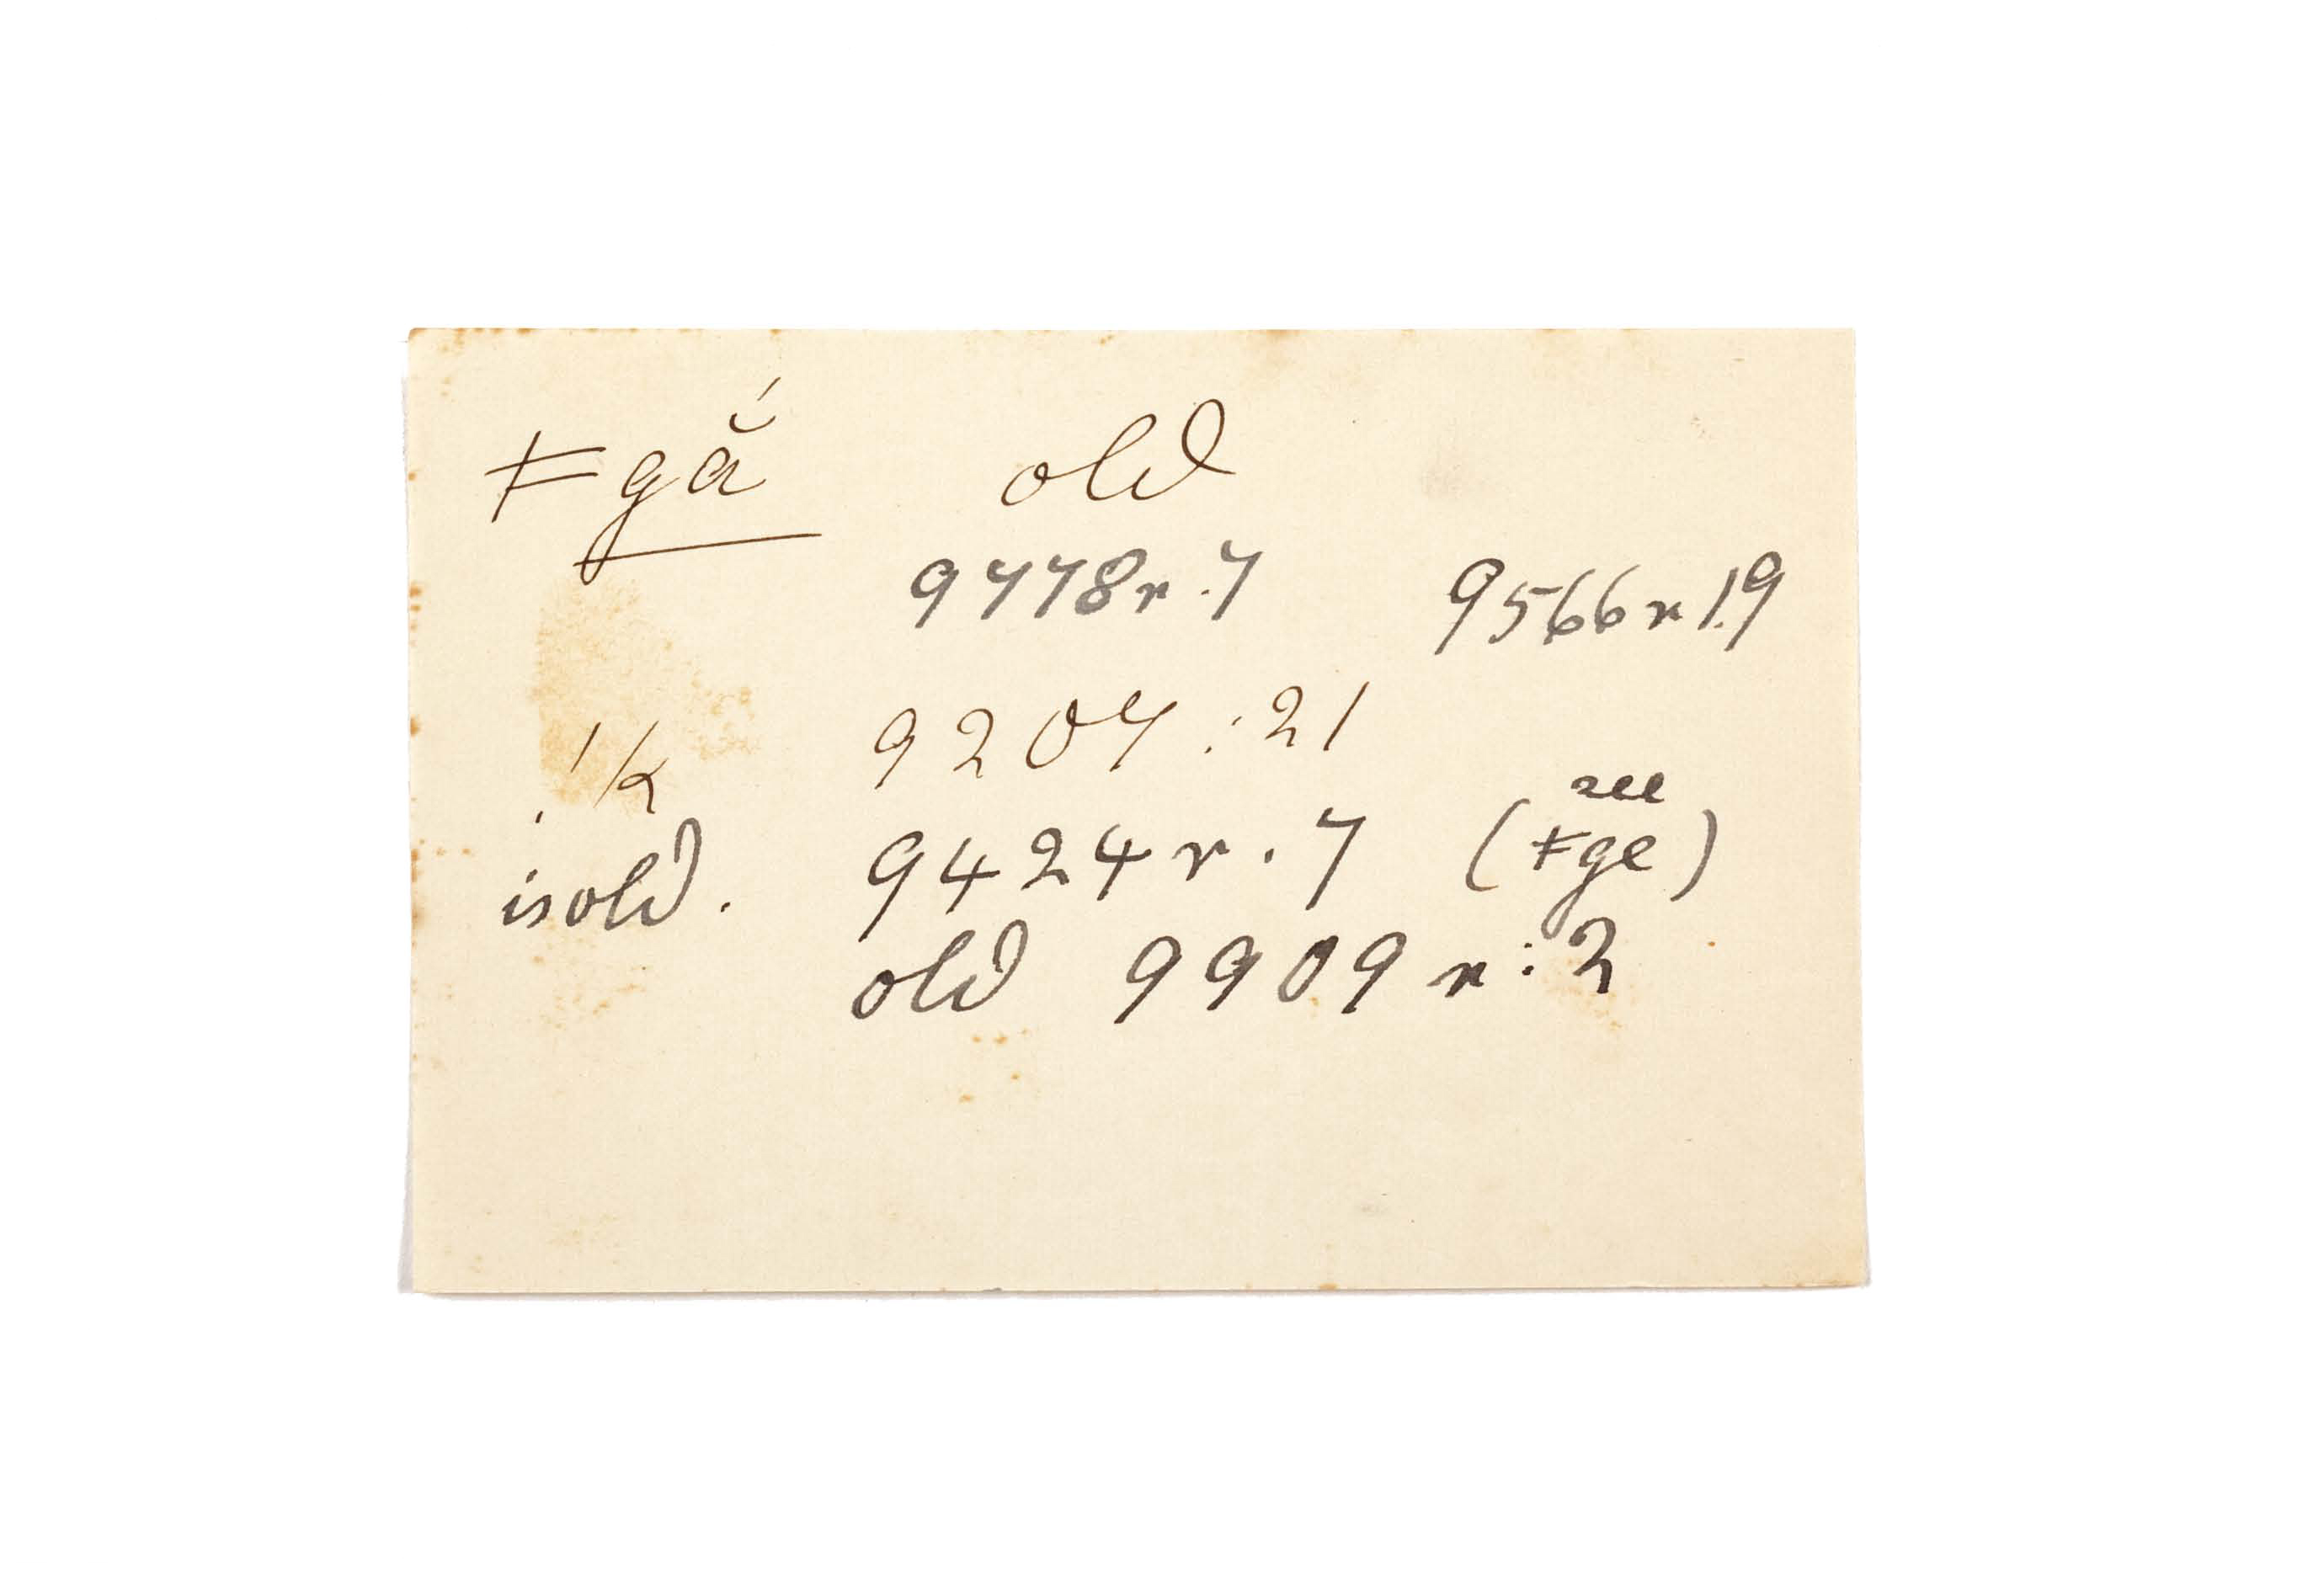 ǂgā̆́ old
9778r.7 9566r19
!k 9207:21
is old. 9424r.7 (see ǂge)
old 9909r:2